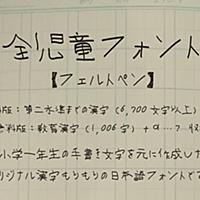 全児童フォント
【フェルトペン】
版：第二水準までの漢字（6,700文字以上）
料版：教育漢字（1,006字）＋α…？収
小学一年生の手書き文字を元に作成した
リジナル漢字もりもりの日本語フォントです